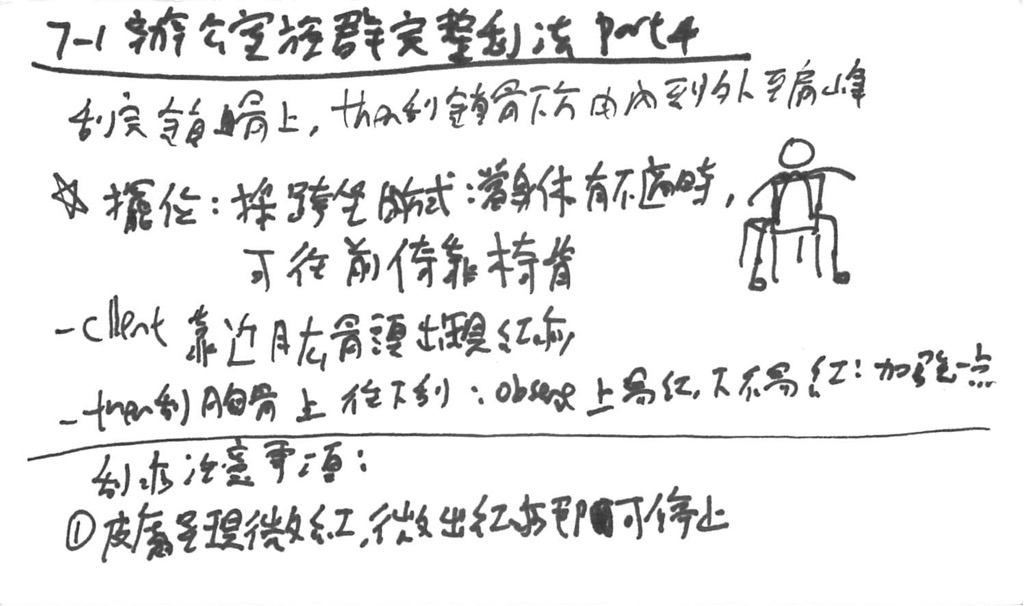 7-1 辦公室族群完整刮法 Part 4
刮完鎖骨上, then刮鎖骨下方由內到外至肩峰
☆ 擺位: 採跨坐胸式: 當身体有不適時,
可往前倚靠椅背
- client 靠近肱骨頭出現紅痧
- then刮胸骨上往下刮: observe 上易紅, 下不易紅: 加強一点
刮痧注意事項:
① 皮膚呈現微紅, 微出紅痧即可停止